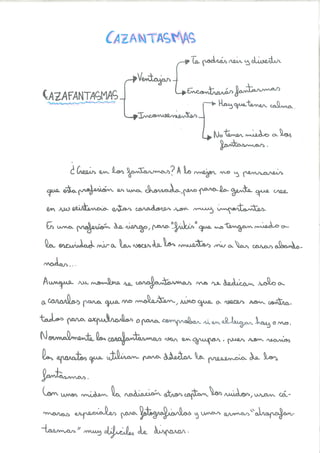 CAZANTASMAS
Te podrás reir y divertir
Ventajas
Encontrarás fantasmas
CAZAFANTASMAS
Hay que tener calma
Inconvenientes
No tener miedo a los
fantasmas.
¿Creéis en los fantasmas? A lo mejor no y pensaréis
que esta profesión es una chorrada, pero para la gente que cree
en su existencia estos cazadores son muy importantes.
Es una profesión de riesgo, para "frikis" que no tengan miedo a
la oscuridad ni a las voces de los muertos ni a las casas abando-
nadas...
Aunque su nombre es cazafantasmas no se dedican solo a
a cazarlos para que no molesten, sino que a veces son contra-
tados para expulsarlos o para comprobar si en el lugar hay o no.
Normalmente los cazafantasmas van en grupos, pues son varios
los aparatos que utilizan para detectar la presencia de los
fantasmas.
Con unos miden la radiación otros captan los ruidos, usan cá-
maras especiales para fotografiarlos y unas armas "atrapafan-
tasmas" muy difíciles de disparar.